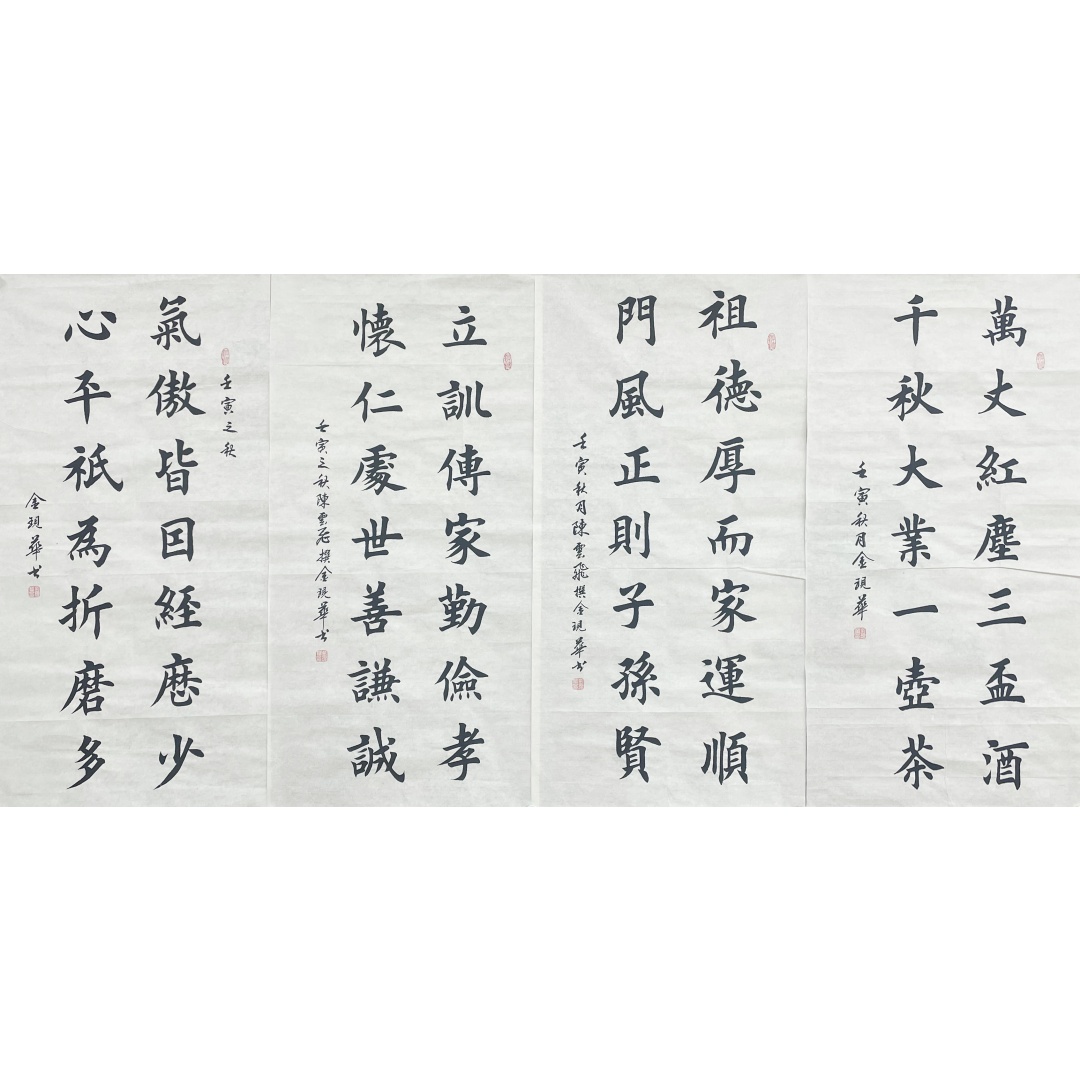 萬丈紅塵三盃酒
千秋大業一壺茶
壬寅秋月金現華
祖德厚而家運順
門風正則子孫賢
壬寅秋月陳雲飛撰金現華书
立訓傳家勤儉孝
懷仁處世善謙誠
壬寅之秋陳雲飛撰金現華书
壬寅之秋
氣傲皆因經歷少
心平祇為折磨多
金現華书